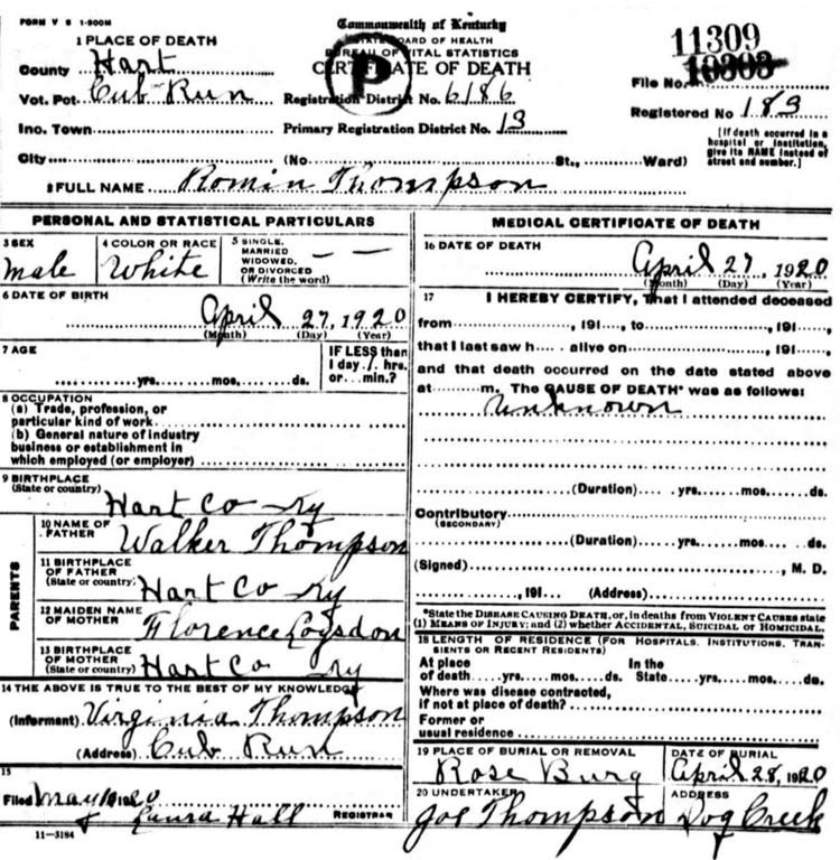 FORM V S 1-900M
Commonwealth of Kentucky
STATE BOARD OF HEALTH
BUREAU OF VITAL STATISTICS
CERTIFICATE OF DEATH
P
1 PLACE OF DEATH
County Hart
Vot. Pct. Cub Run
Inc. Town
City (No. St., Ward)
Registration District No. 6186
Primary Registration District No. 13
11309
File No. 10303
Registered No 183
[If death occurred in a
hospital or institution,
give its NAME instead of
street and number.]
2 FULL NAME Romin Thompson
PERSONAL AND STATISTICAL PARTICULARS
3 SEX
male
4 COLOR OR RACE
White
5 SINGLE,
MARRIED
WIDOWED,
OR DIVORCED
(Write the word)
— —
6 DATE OF BIRTH
April 27, 1920
(Month) (Day) (Year)
7 AGE
yrs. mos. ds.
IF LESS than
1 day 1 hrs.
or min.?
8 OCCUPATION
(a) Trade, profession, or
particular kind of work
(b) General nature of industry
business or establishment in
which employed (or employer)
9 BIRTHPLACE
(State or country)
Hart Co Ky
PARENTS
10 NAME OF
FATHER
Walker Thompson
11 BIRTHPLACE
OF FATHER
(State or country)
Hart Co Ky
12 MAIDEN NAME
OF MOTHER
Florence Logsdon
13 BIRTHPLACE
OF MOTHER
(State or country)
Hart Co Ky
14 THE ABOVE IS TRUE TO THE BEST OF MY KNOWLEDGE
(Informant) Virginia Thompson
(Address) Cub Run
15
Filed May 1920
Laura Hall REGISTRAR
11-3184
MEDICAL CERTIFICATE OF DEATH
16 DATE OF DEATH
April 27, 1920
(Month) (Day) (Year)
17 I HEREBY CERTIFY, That I attended deceased
from , 191 , to , 191 ,
that I last saw h alive on , 191 ,
and that death occurred on the date stated above
at m. The CAUSE OF DEATH* was as follows:
unknown
(Duration) yrs. mos. ds.
Contributory
(SECONDARY)
(Duration) yrs. mos. ds.
(Signed) , M. D.
, 191 (Address)
*State the DISEASE CAUSING DEATH, or, in deaths from VIOLENT CAUSES state
(1) MEANS OF INJURY; and (2) whether ACCIDENTAL, SUICIDAL or HOMICIDAL.
18 LENGTH OF RESIDENCE (FOR HOSPITALS, INSTITUTIONS, TRAN-
SIENTS OR RECENT RESIDENTS)
At place In the
of death yrs. mos. ds. State yrs. mos. ds.
Where was disease contracted,
if not at place of death?
Former or
usual residence
19 PLACE OF BURIAL OR REMOVAL
Rose Burg
DATE OF BURIAL
April 28, 1920
20 UNDERTAKER
Joe Thompson
ADDRESS
Dog Creek